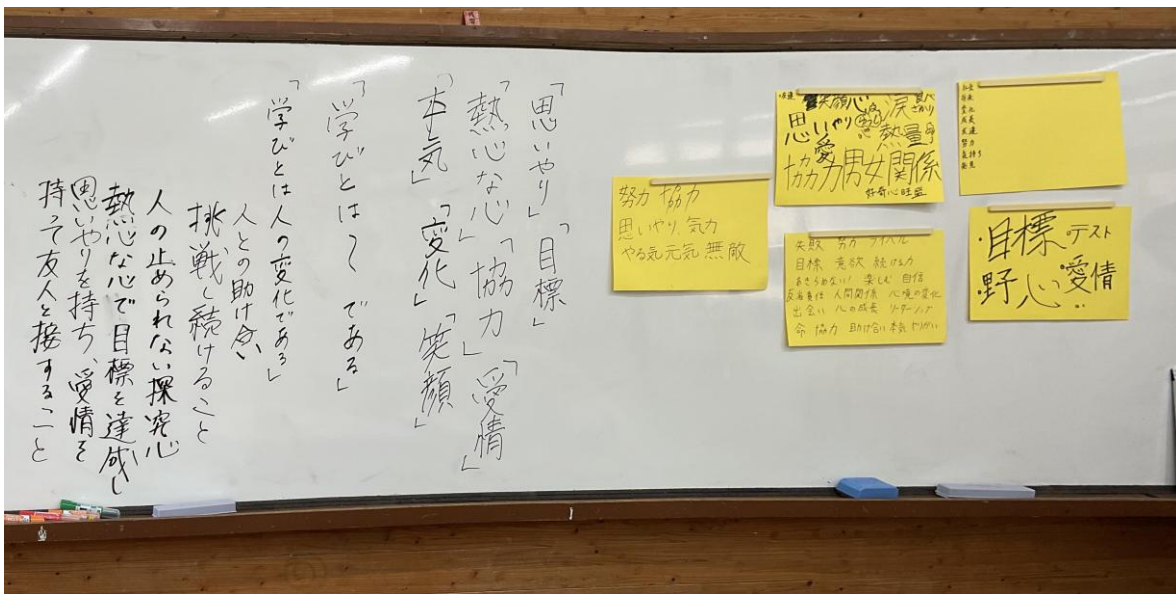 「思いやり」「目標」
「熱心な心」「協力」「愛情」
「本気」「変化」「笑顔」
「学びとは〜である」
「学びとは人の変化である」
人との助け合い
挑戦し続けること
人の止められない探究心
熱心な心で目標を達成し
思いやりを持ち、愛情を
持って友人と接すること
努力 協力
思いやり、気力
やる気 元気 無敵
笑顔 心 涙
思いやり 熱量
愛
協力 男女関係
好奇心旺盛
失敗 努力 ライバル
目標 意欲 続ける力
あきらめない! 楽しむ 自信
人間関係 心境の変化
出会い 心の成長
命 協力 助け合い 本気 やりがい
成長
発達
努力
気持ち
発見
・目標 ・テスト
・野心 ・愛情